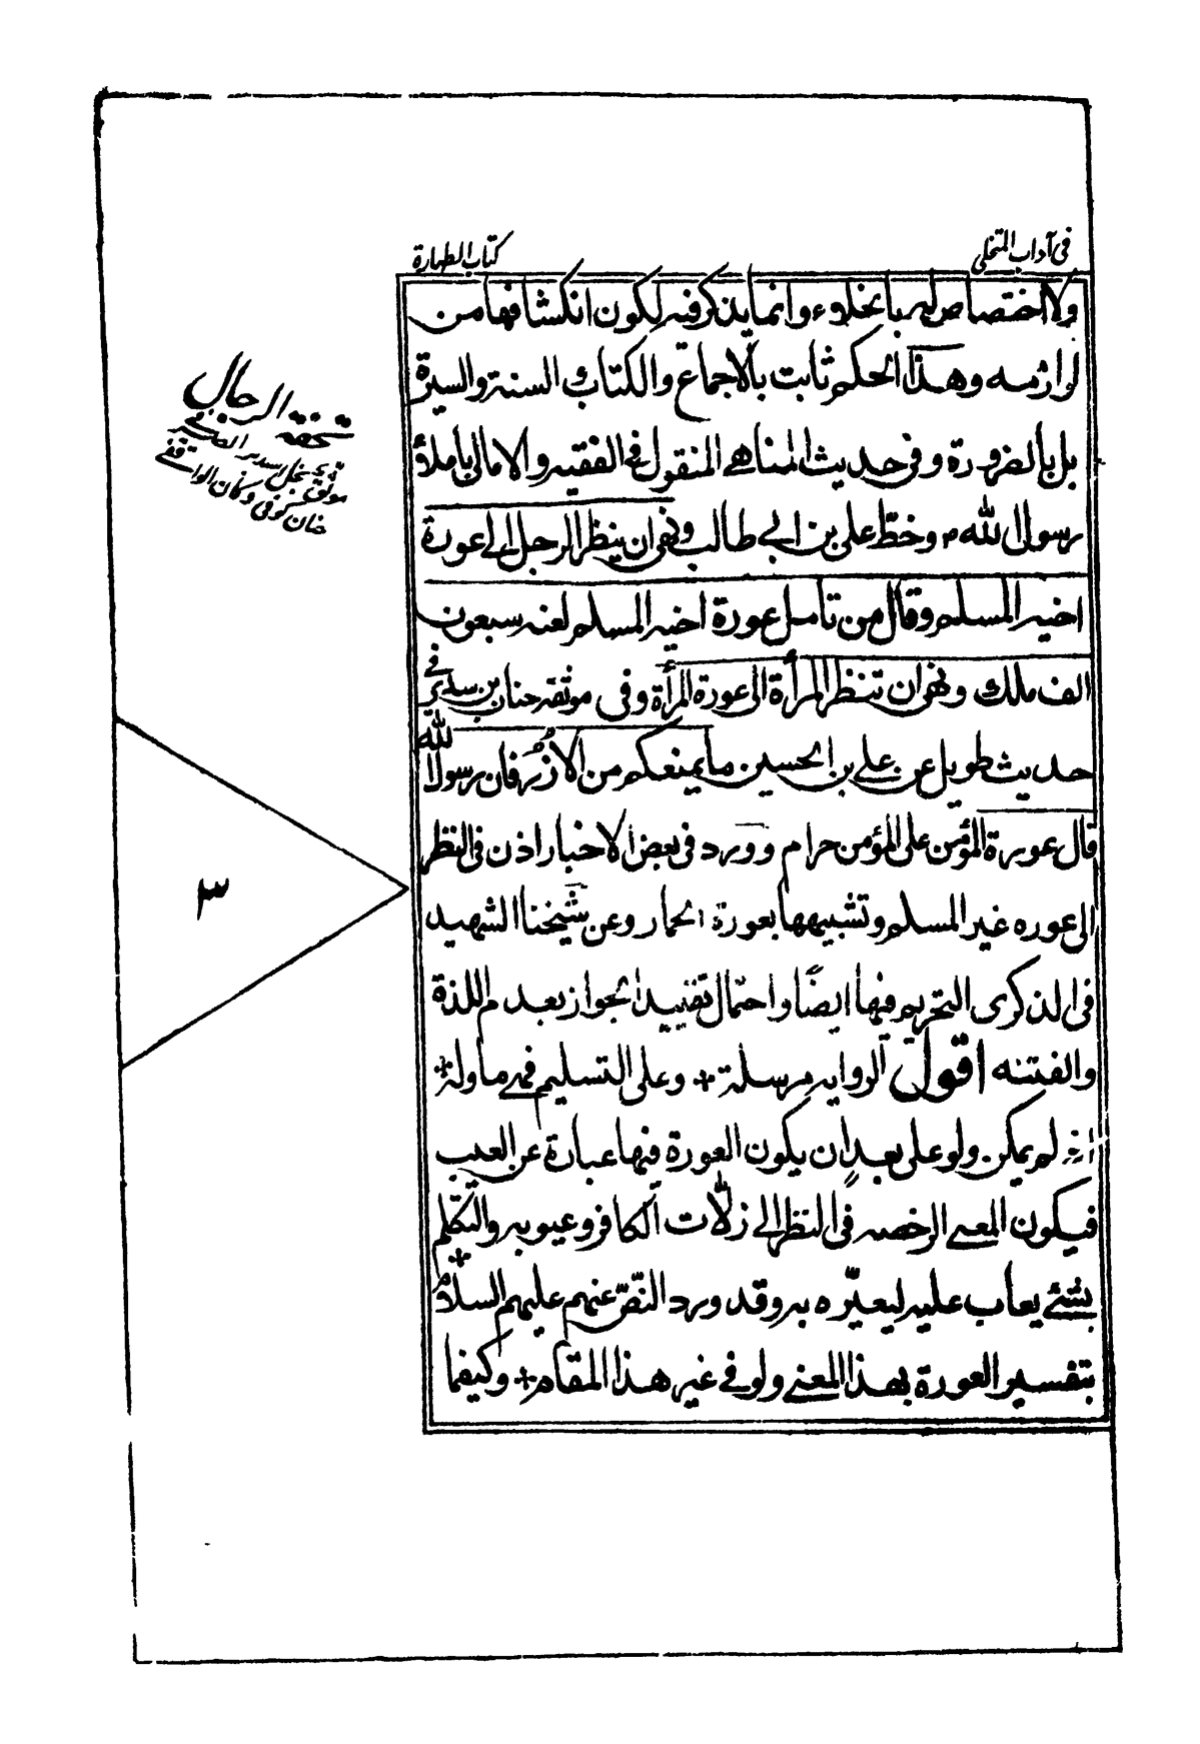 في آداب المتخلي
كتاب الطهارة
ولا اختصاص له بالخلاء وانما يذكر فيه لكون انكشافها من
لوازمه وهذا الحكم ثابت بالاجماع والكتاب السنة والسيرة
بل بالضرورة وفي حديث المناهي المنقول في الفقيه والامالي باملاء
رسول الله ص وخطّ علي بن ابي طالب ونهى ان ينظر الرجل الى عورة
اخيه المسلم وقال من تأمل عورة اخيه المسلم لعنه سبعون
الف ملك ونهى ان تنظر المرأة الى عورة المرأة وفي موثقة حنان بن سدير في
حديث طويل عن علي بن الحسين ما يمنعكم من الاُزُر فان رسول الله
قال عورة المؤمن على المؤمن حرام وورد في بعض الاخبار اذن في النظر
الى عوره غير المسلم وتشبيهها بعورة الحمار وعن شيخنا الشهيد
في الذكرى التحريم فيها ايضًا واحتمال تقييد الجواز بعدم اللذة
والفتنه اقول الروايه مرسلة + وعلى التسليم فهي ماولة +
انه لم يمكن ولو على بعدٍ ان يكون العورة فيها عبارة عن العيب
فيكون المعنى الرخصه في النظر الى زلّات الكافر وعيوبه والتكلّم
بشئ يعاب عليه ليعيّره به وقد ورد النصّ عنهم عليهم السلام +
بتفسير العورة بهذا المعنى ولو في غير هذا المقام + وكيفما
تحفة الرجال
موثق
كوفي وكان الواقفي
٣